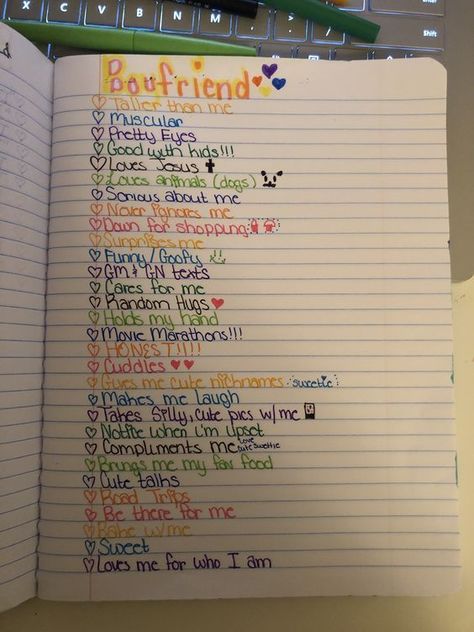 Boyfriend
Taller than me
Muscular
Pretty Eyes
Good with kids!!!
Loves Jesus
Loves animals (dogs)
Serious about me
Never ignores me
Down for shopping
Surprises me
Funny/Goofy
GM & GN texts
Cares for me
Random Hugs
Holds my hand
Movie Marathons!!!
HONEST!!!!
Cuddles
Gives me cute nicknames sweetie
Makes me laugh
Takes Silly, cute pics w/me
Notice when i'm upset
Compliments me
Brings me my fav food
Cute talks
Road Trips
Be there for me
Bake w/me
Sweet
Loves me for who I am